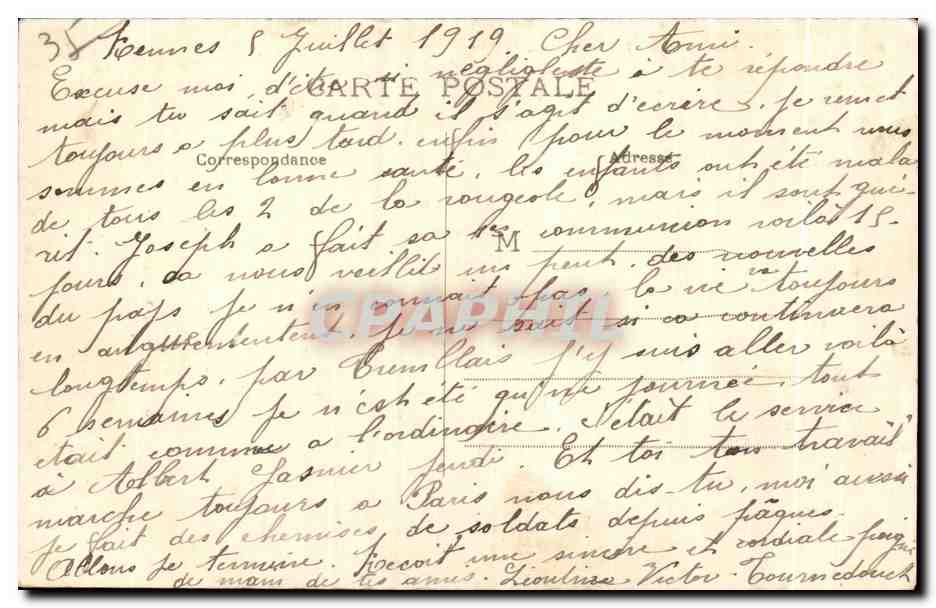 35 Rennes 5 Juillet 1919. Cher Ami.
Excuse moi d'être si négligente à te répondre
CARTE POSTALE
mais tu sait quand il s'agit d'écrire. Je remet
toujours a plus tard. enfin pour le moment nous
Correspondance
Adresse
sommes en bonne santé, les enfants ont été mala
de tous les 2 de la rougeole, mais il sont gué-
rit. Joseph a fait sa 1re communion voilà 15
M
jours, ca nous veillit un peut. des nouvelles
du pays je n'en connait pas. la vie va toujours
en augmentent. Je ne sait si ca continuera
CPAPHIL
longtemps. par Tremblais j'y suis aller voilà
6 semaines je n'est été qu'une journée. tout
etait comme a l'ordinaire. C'était le service
à Albert Jasnier jeudi. Et toi ton travail
marche toujours a Paris nous dis-tu, moi aussi
je fait des chemises de soldats depuis pâques.
Allons je termine. Recoit une sincere et cordiale poigné
de main de tes amis. Léontine Victor Tournedouet